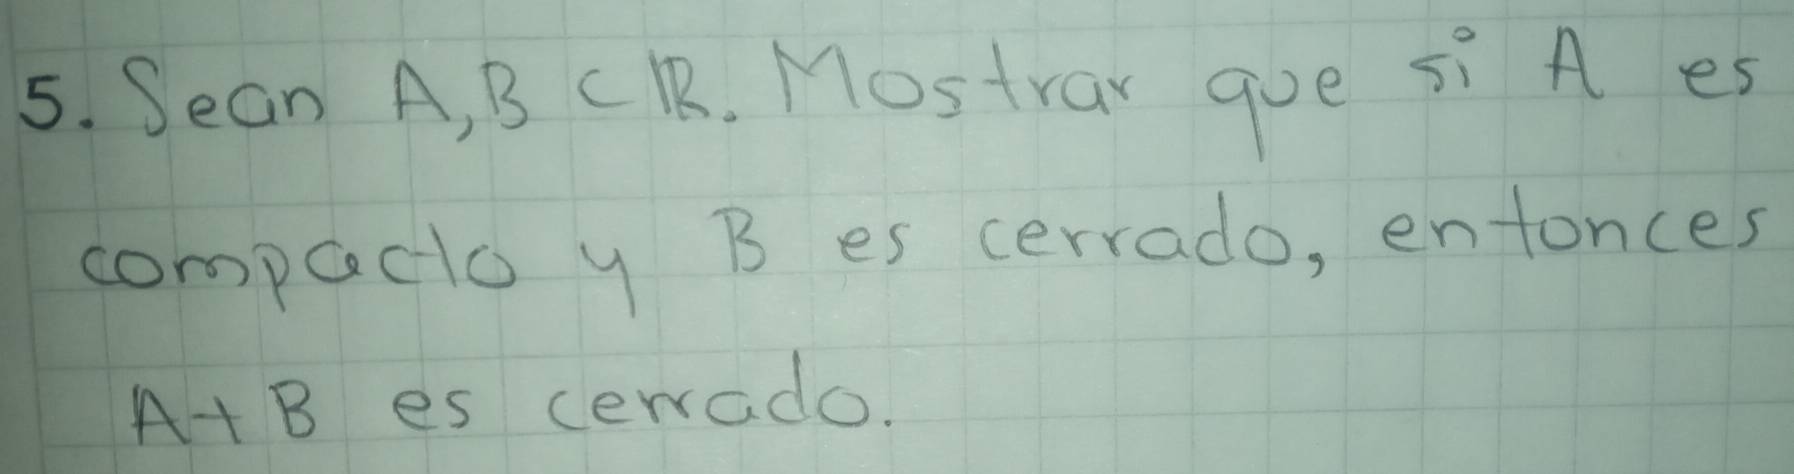 5. Sean A, B ⊂ ℝ. Mostrar que si A es
compacto y B es cerrado, entonces
A + B es cerrado.